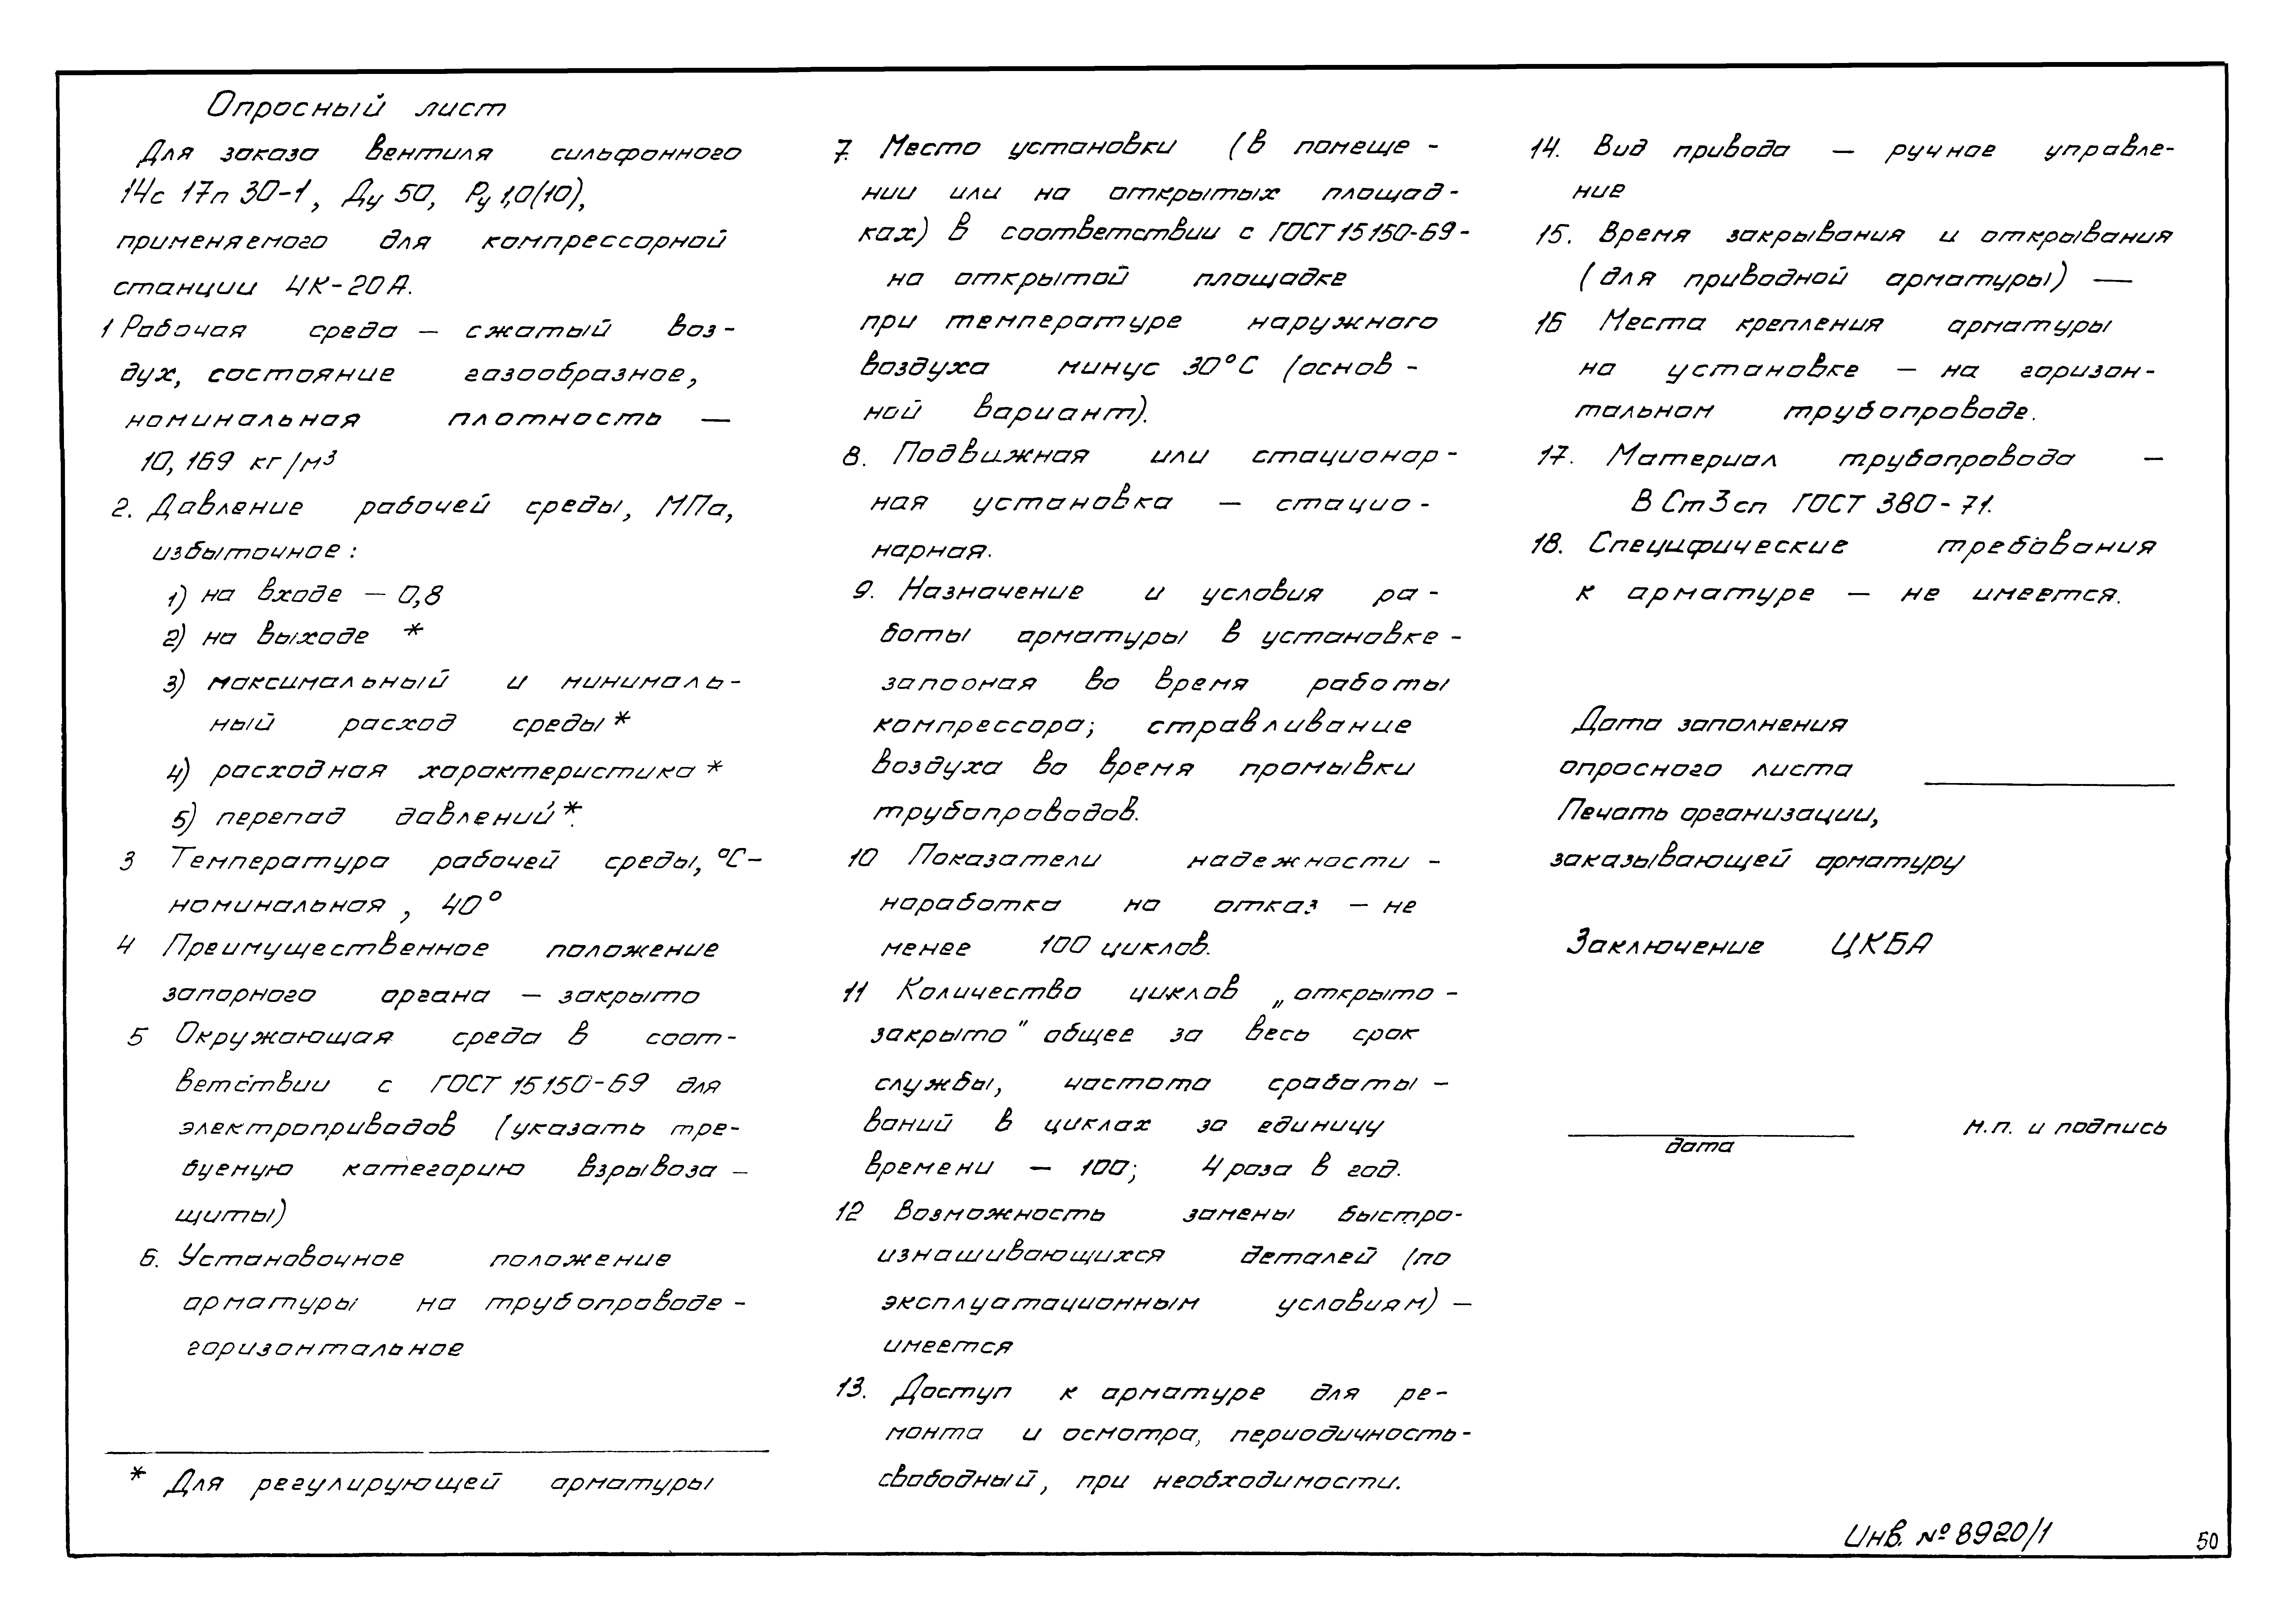 Опросный лист
Для заказа вентиля сильфонного
14с 17п 30-1, Ду 50, Ру 1,0(10),
применяемого для компрессорной
станции 4К-20А.
1 Рабочая среда — сжатый воз-
дух, состояние газообразное,
номинальная плотность —
10,169 кг/м³
2. Давление рабочей среды, МПа,
избыточное:
1) на входе — 0,8
2) на выходе *
3) максимальный и минималь-
ный расход среды *
4) расходная характеристика *
5) перепад давлений *.
3 Температура рабочей среды, °С-
номинальная, 40°
4 Преимущественное положение
запорного органа — закрыто
5 Окружающая среда в соот-
ветствии с ГОСТ 15150-69 для
электроприводов (указать тре-
буемую категорию взрывоза-
щиты)
6. Установочное положение
арматуры на трубопроводе -
горизонтальное
* Для регулирующей арматуры
7. Место установки (в помеще-
нии или на открытых площад-
ках) в соответствии с ГОСТ 15150-69-
на открытой площадке
при температуре наружного
воздуха минус 30°С (основ-
ной вариант).
8. Подвижная или стационар-
ная установка — стацио-
нарная.
9. Назначение и условия ра-
боты арматуры в установке -
запорная во время работы
компрессора; стравливание
воздуха во время промывки
трубопроводов.
10 Показатели надежности -
наработка на отказ — не
менее 100 циклов.
11 Количество циклов „открыто -
закрыто" общее за весь срок
службы, частота срабаты-
ваний в циклах за единицу
времени — 100; 4 раза в год.
12 Возможность замены быстро-
изнашивающихся деталей (по
эксплуатационным условиям) —
имеется
13. Доступ к арматуре для ре-
монта и осмотра, периодичность-
свободный, при необходимости.
14. Вид привода — ручное управле-
ние
15. Время закрывания и открывания
(для приводной арматуры) —
16 Места крепления арматуры
на установке — на горизон-
тальном трубопроводе.
17. Материал трубопровода —
В Ст3сп ГОСТ 380-71.
18. Специфические требования
к арматуре — не имеется.
Дата заполнения
опросного листа
Печать организации,
заказывающей арматуру
Заключение ЦКБА
дата
м.п. и подпись
Инв. № 8920/1
50